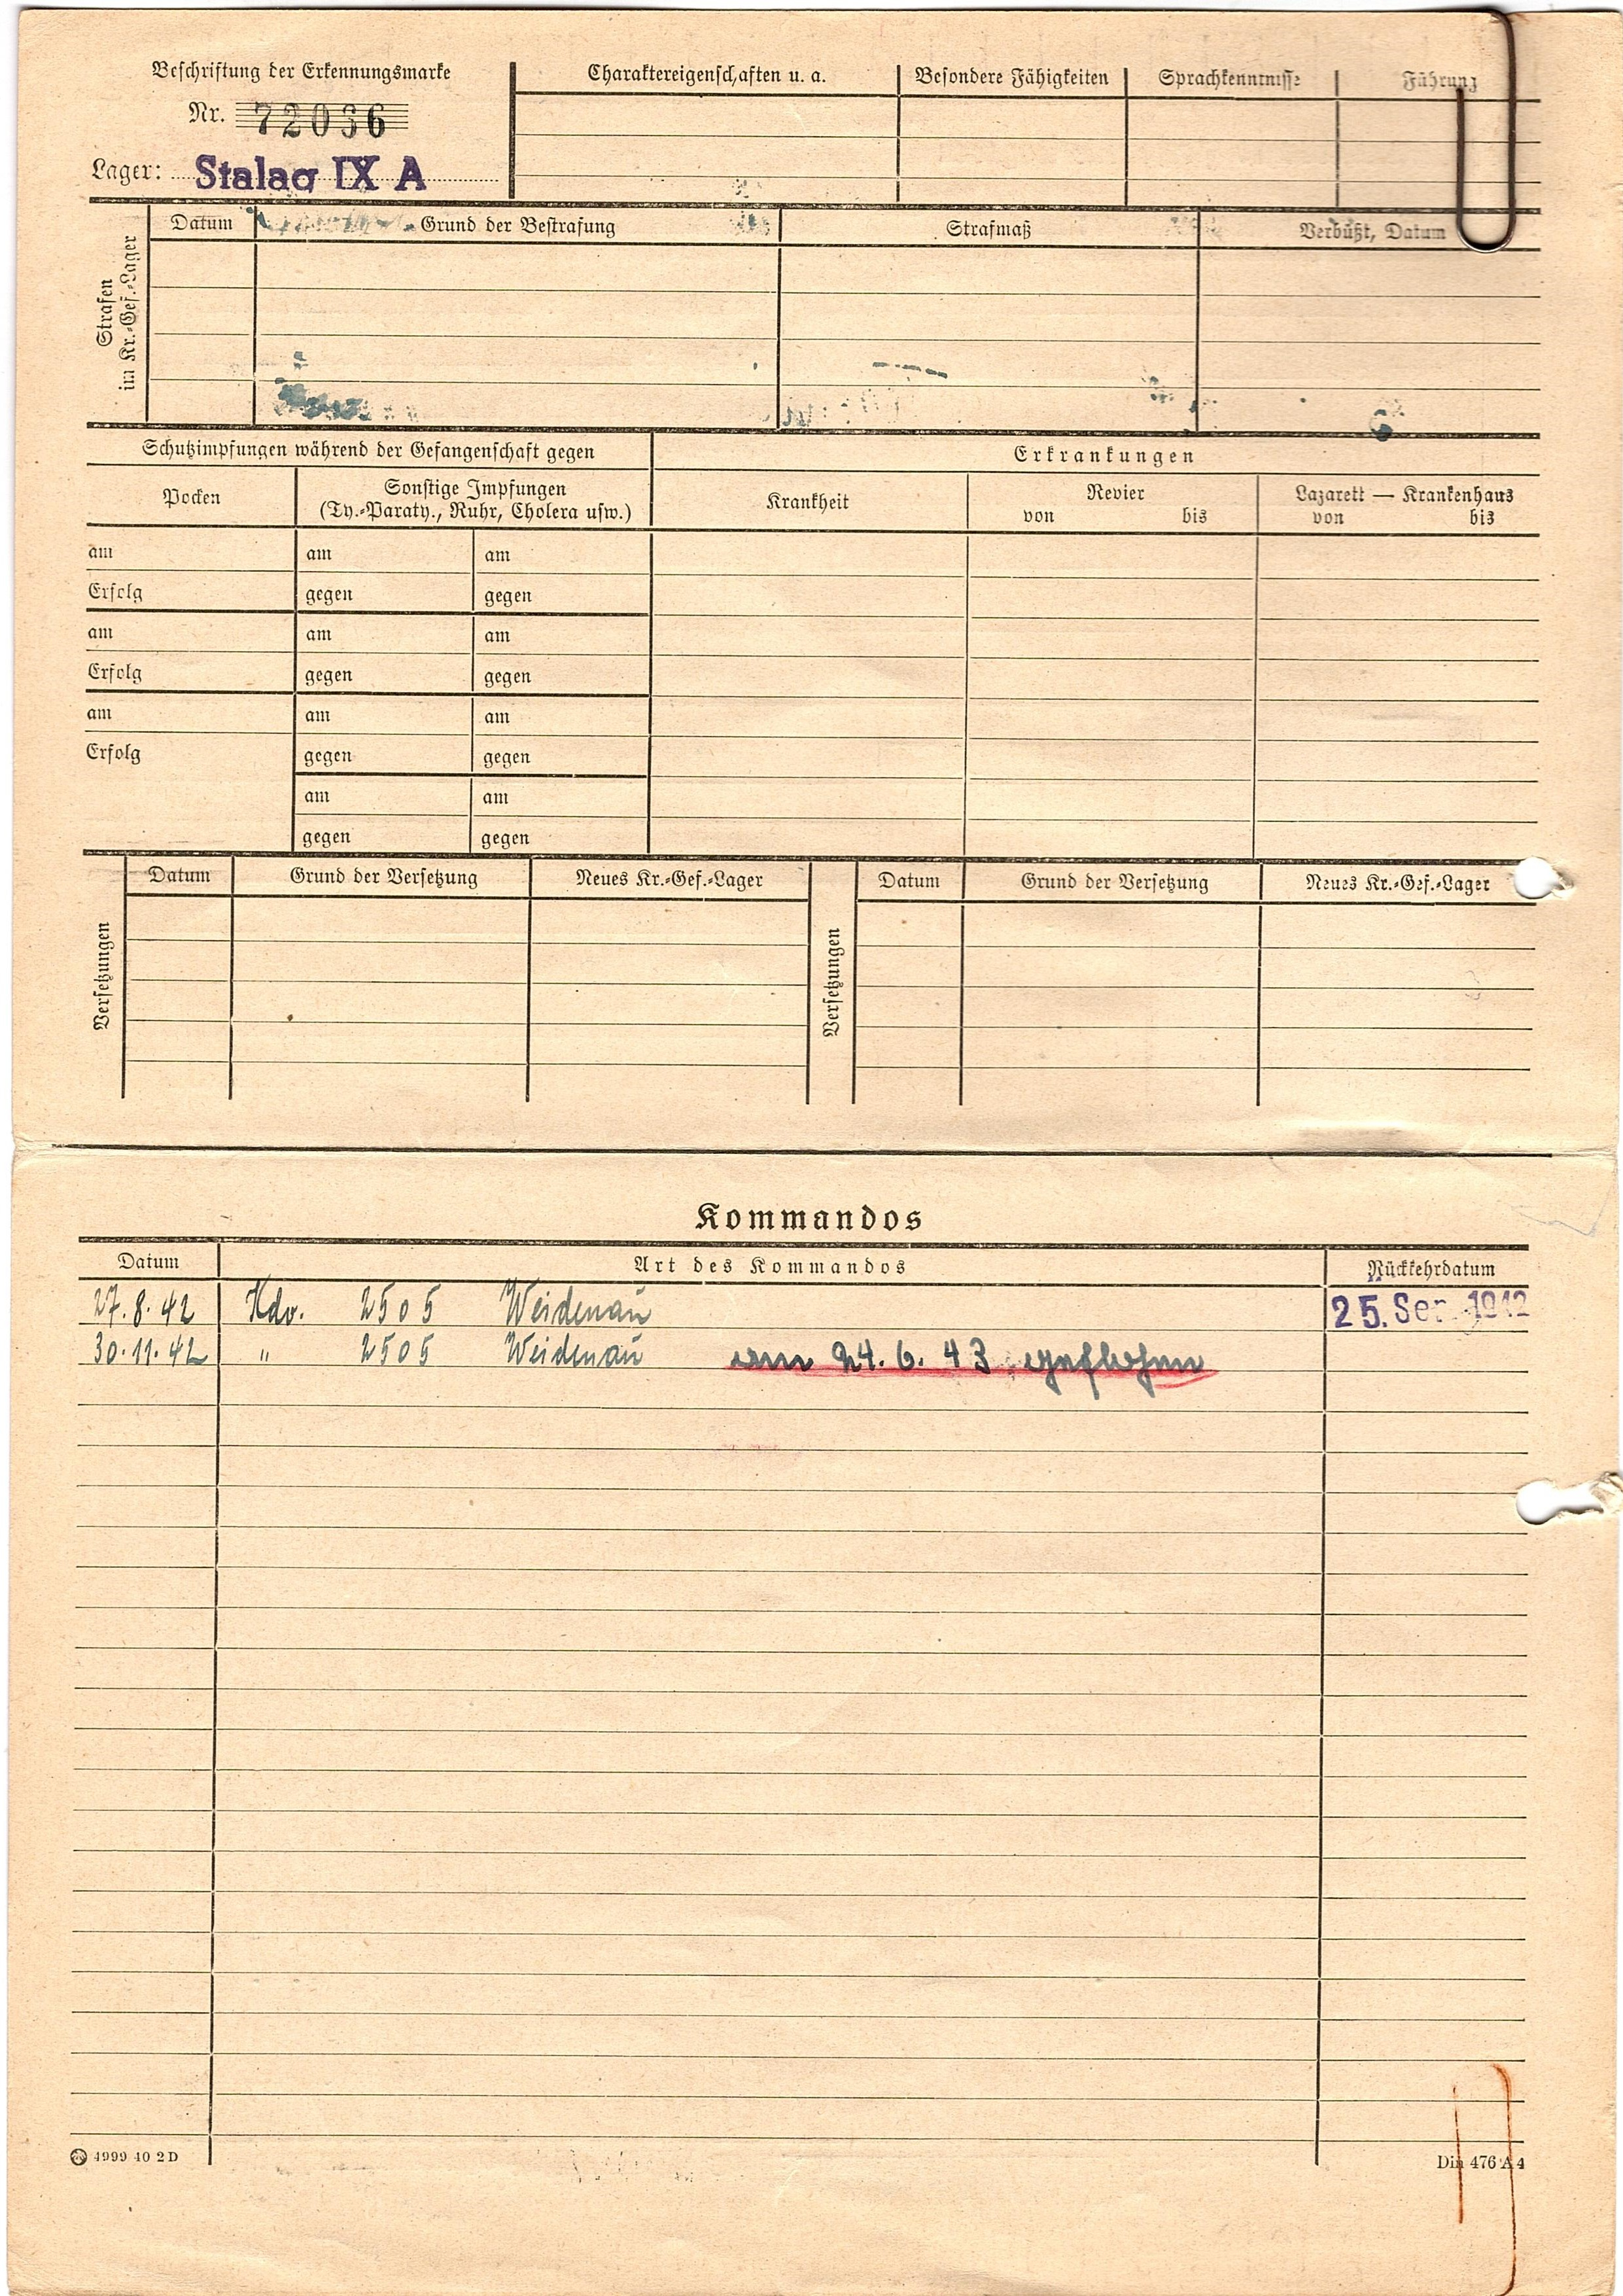 Beschriftung der Erkennungsmarke
Nr. 72036
Lager: Stalag IX A
Charaktereigenschaften u. a.
Besondere Fähigkeiten
Sprachkenntnisse
Führung
Strafen
im Kr.-Gef.-Lager
Datum
Grund der Bestrafung
Strafmaß
Verbüßt, Datum
Schutzimpfungen während der Gefangenschaft gegen
Erkrankungen
Pocken
Sonstige Impfungen
(Ty.-Paraty., Ruhr, Cholera usw.)
Krankheit
Revier
von bis
Lazarett — Krankenhaus
von bis
am am am
Erfolg gegen gegen
am am am
Erfolg gegen gegen
am am am
Erfolg gegen gegen
am am
gegen gegen
Versetzungen
Datum
Grund der Versetzung
Neues Kr.-Gef.-Lager
Versetzungen
Datum
Grund der Versetzung
Neues Kr.-Gef.-Lager
Kommandos
Datum Art des Kommandos Rückkehrdatum
27.8.42 Kdo. 2505 Weidenau 25. Sep. 1942
30.11.42 " 2505 Weidenau am 24.6.43 geflohen
4999 40 2 D
Din 476 A 4